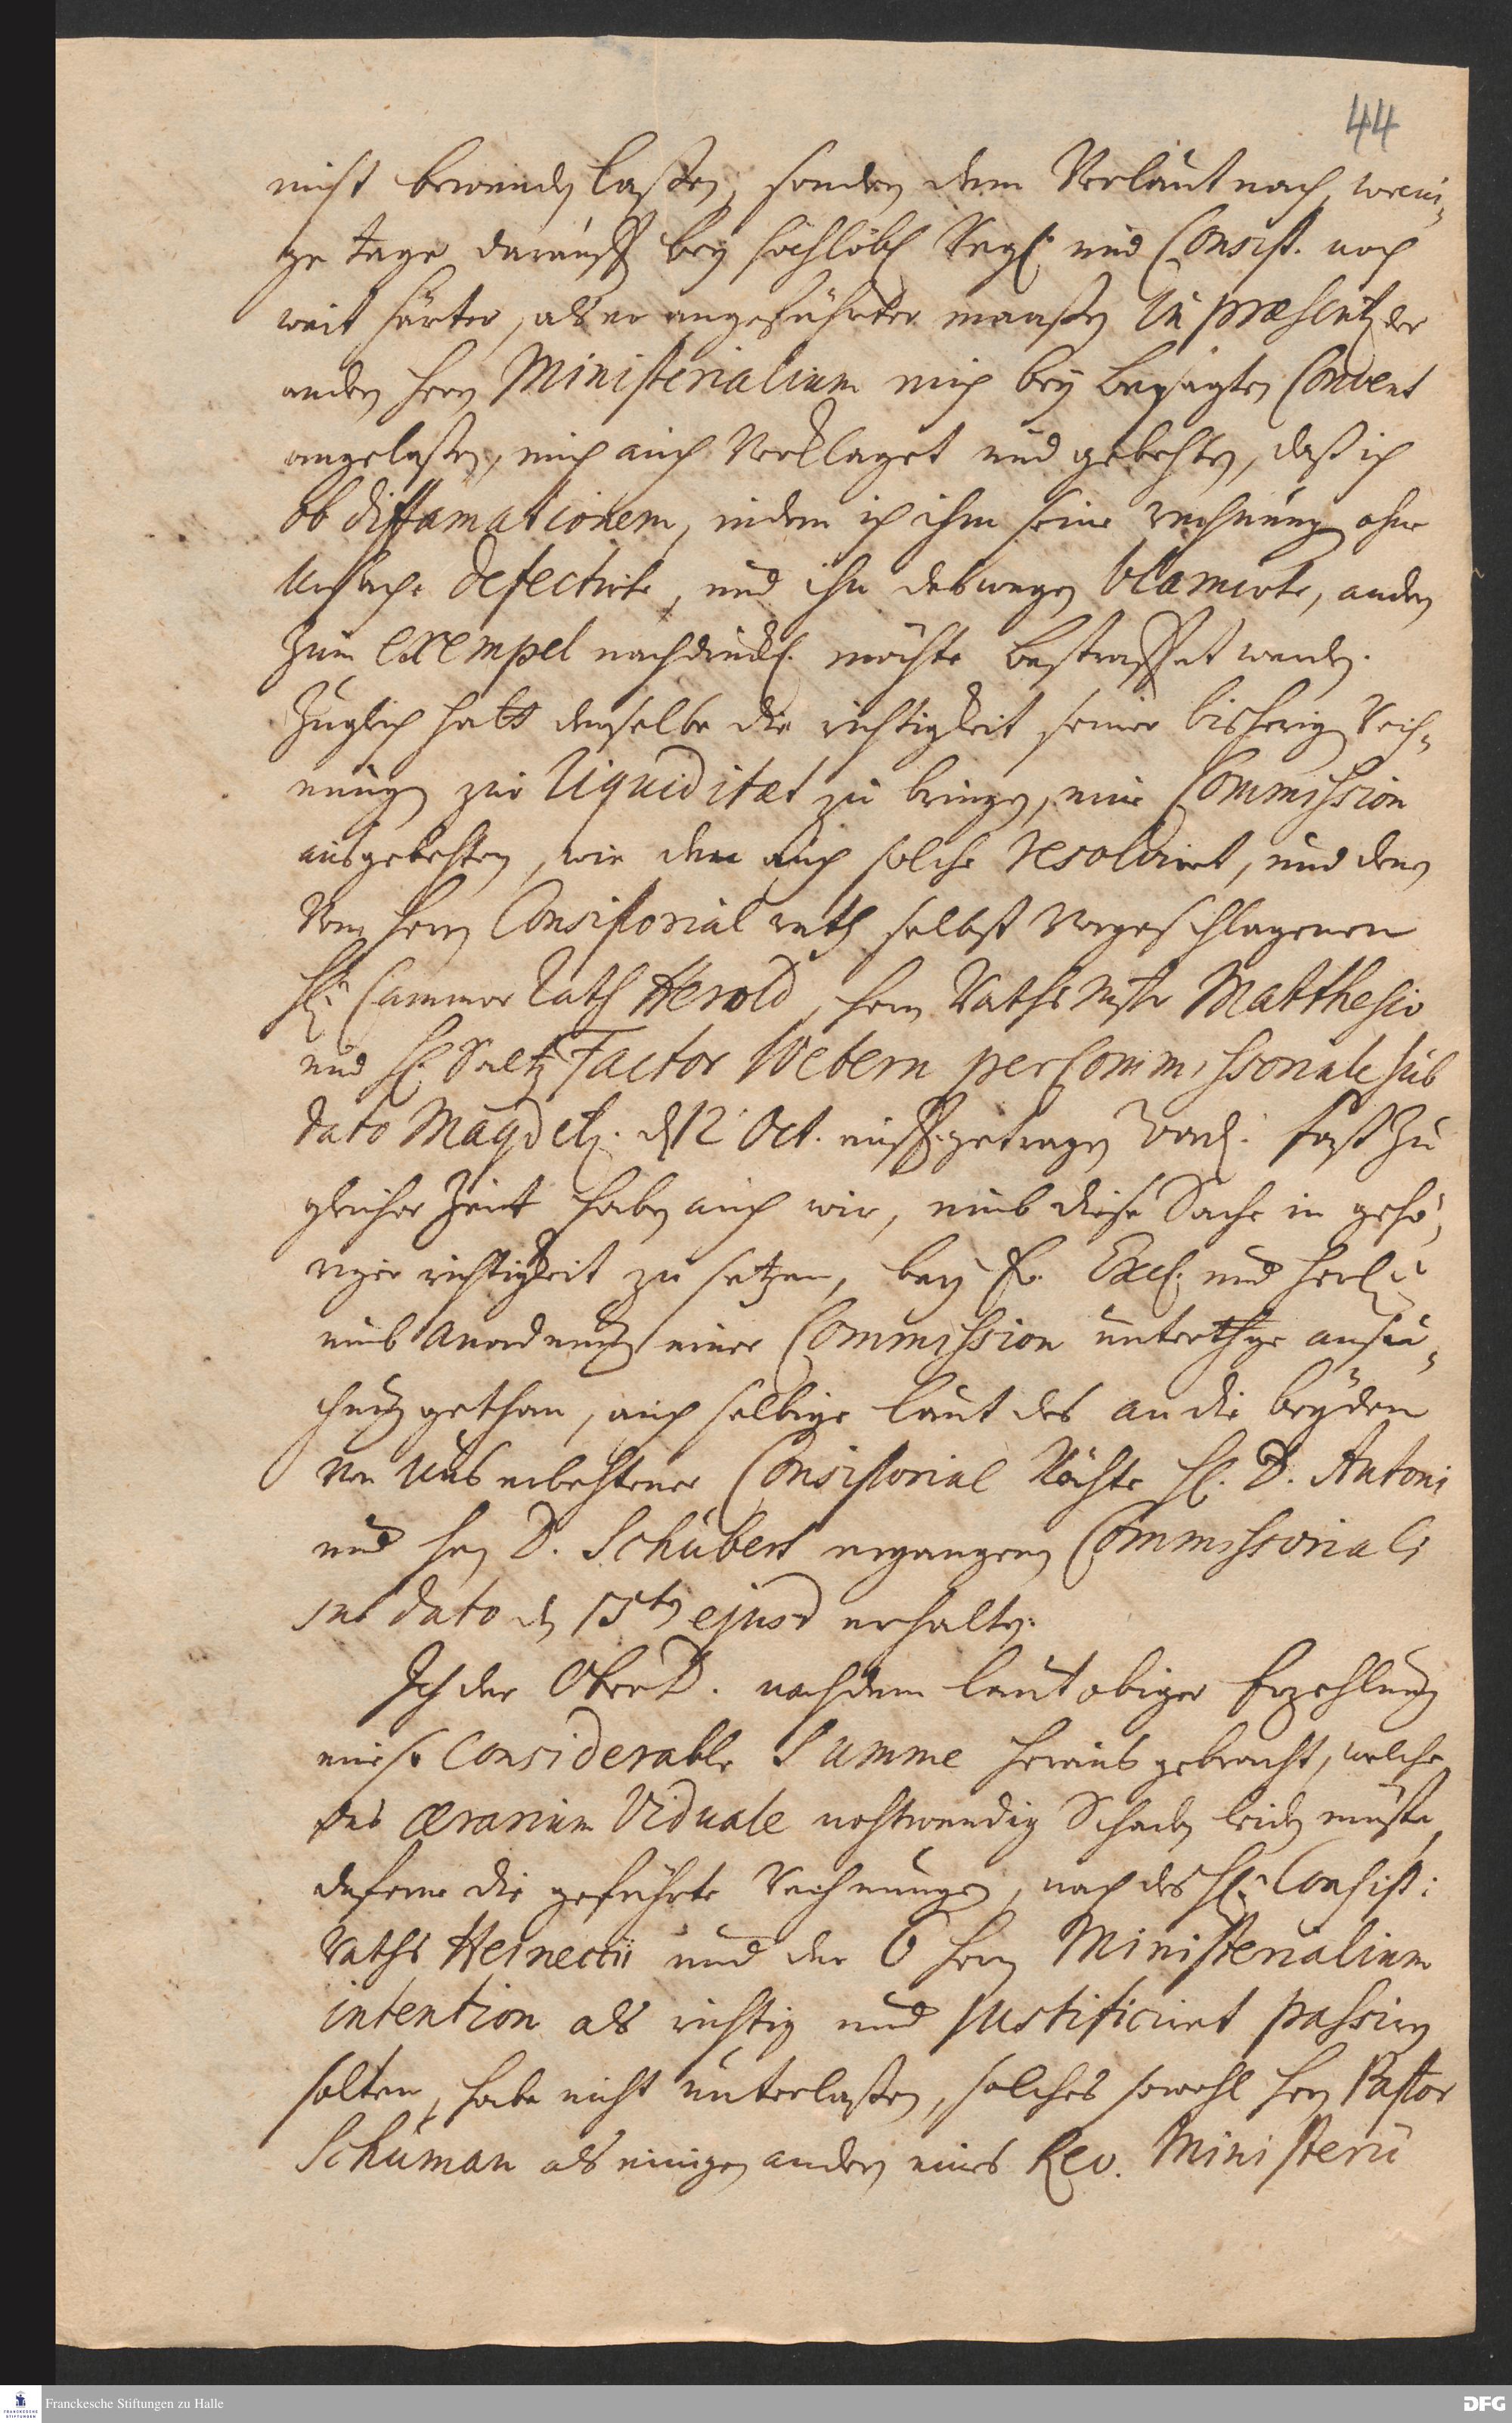 44
nicht bewenden laßen, sondern dem Verlaut nach, weni-
ge tage darauff bey hochlöbl Regl. und Consist. noch
weit härter, als er angeführter maaßen in præsentz der
andern Herrn Ministerialium mich bey besagten Convent
angelaßen, mich auch Verklaget und gebehten, daß ich
ob diffamationem, indem ich ihm seine rechnung ohne
Uhrsache defectirte, und ihn deswegen blamirte, andern
zum exempel nachdrückl. möchte bestraffet werden.
Zugleich hatt derselbe die richtigkeit seiner bisherigen Rech-
nungen zur Liquiditæt zu bringen, eine Commission
ausgebehten, wie den auch solche resolviret, und denen
vom Herrn Consistorial rath selbst vorgeschlagenen
H. Cammer Rath Herold, Herrn Rathsmstr Matthesio
und H. Saltz Factor Webern per Commissoriale sub
dato Magdeb. d 12 Oct. auffgetragen word. Fast zu
gleicher Zeit haben auch wir, umb diese Sache in gehö-
riger richtigkeit zu setzen, bey Ew. Excel. und Herl.
umb anordnung einer Commission unterthge ansu-
chung gethan, auch selbige laut des an die beyden
von Uns erbehtener Consistorial Rähte H. D. Antoni
und Hen D. Schubert ergangenen Commissoriali
sub dato d 15ten ejusd erhalten.
Ich der Ober D. nachdem laut obiger Erzehlung
eine so considerable Summe heraus gebracht, welche
das ærarium Viduale nohtwendig Schaden leiden müste,
dafern die geführte Rechnungen, nach des H. Consist:
Raths Heineccii und der 6 Herrn Ministerialium
intention als richtig und justificiret passiren
solten, habe nicht unterlaßen, solches sowohl Hen Pastor
Schuman als einigen andern eines Rev. Ministerii
Franckesche Stiftungen zu Halle
DFG